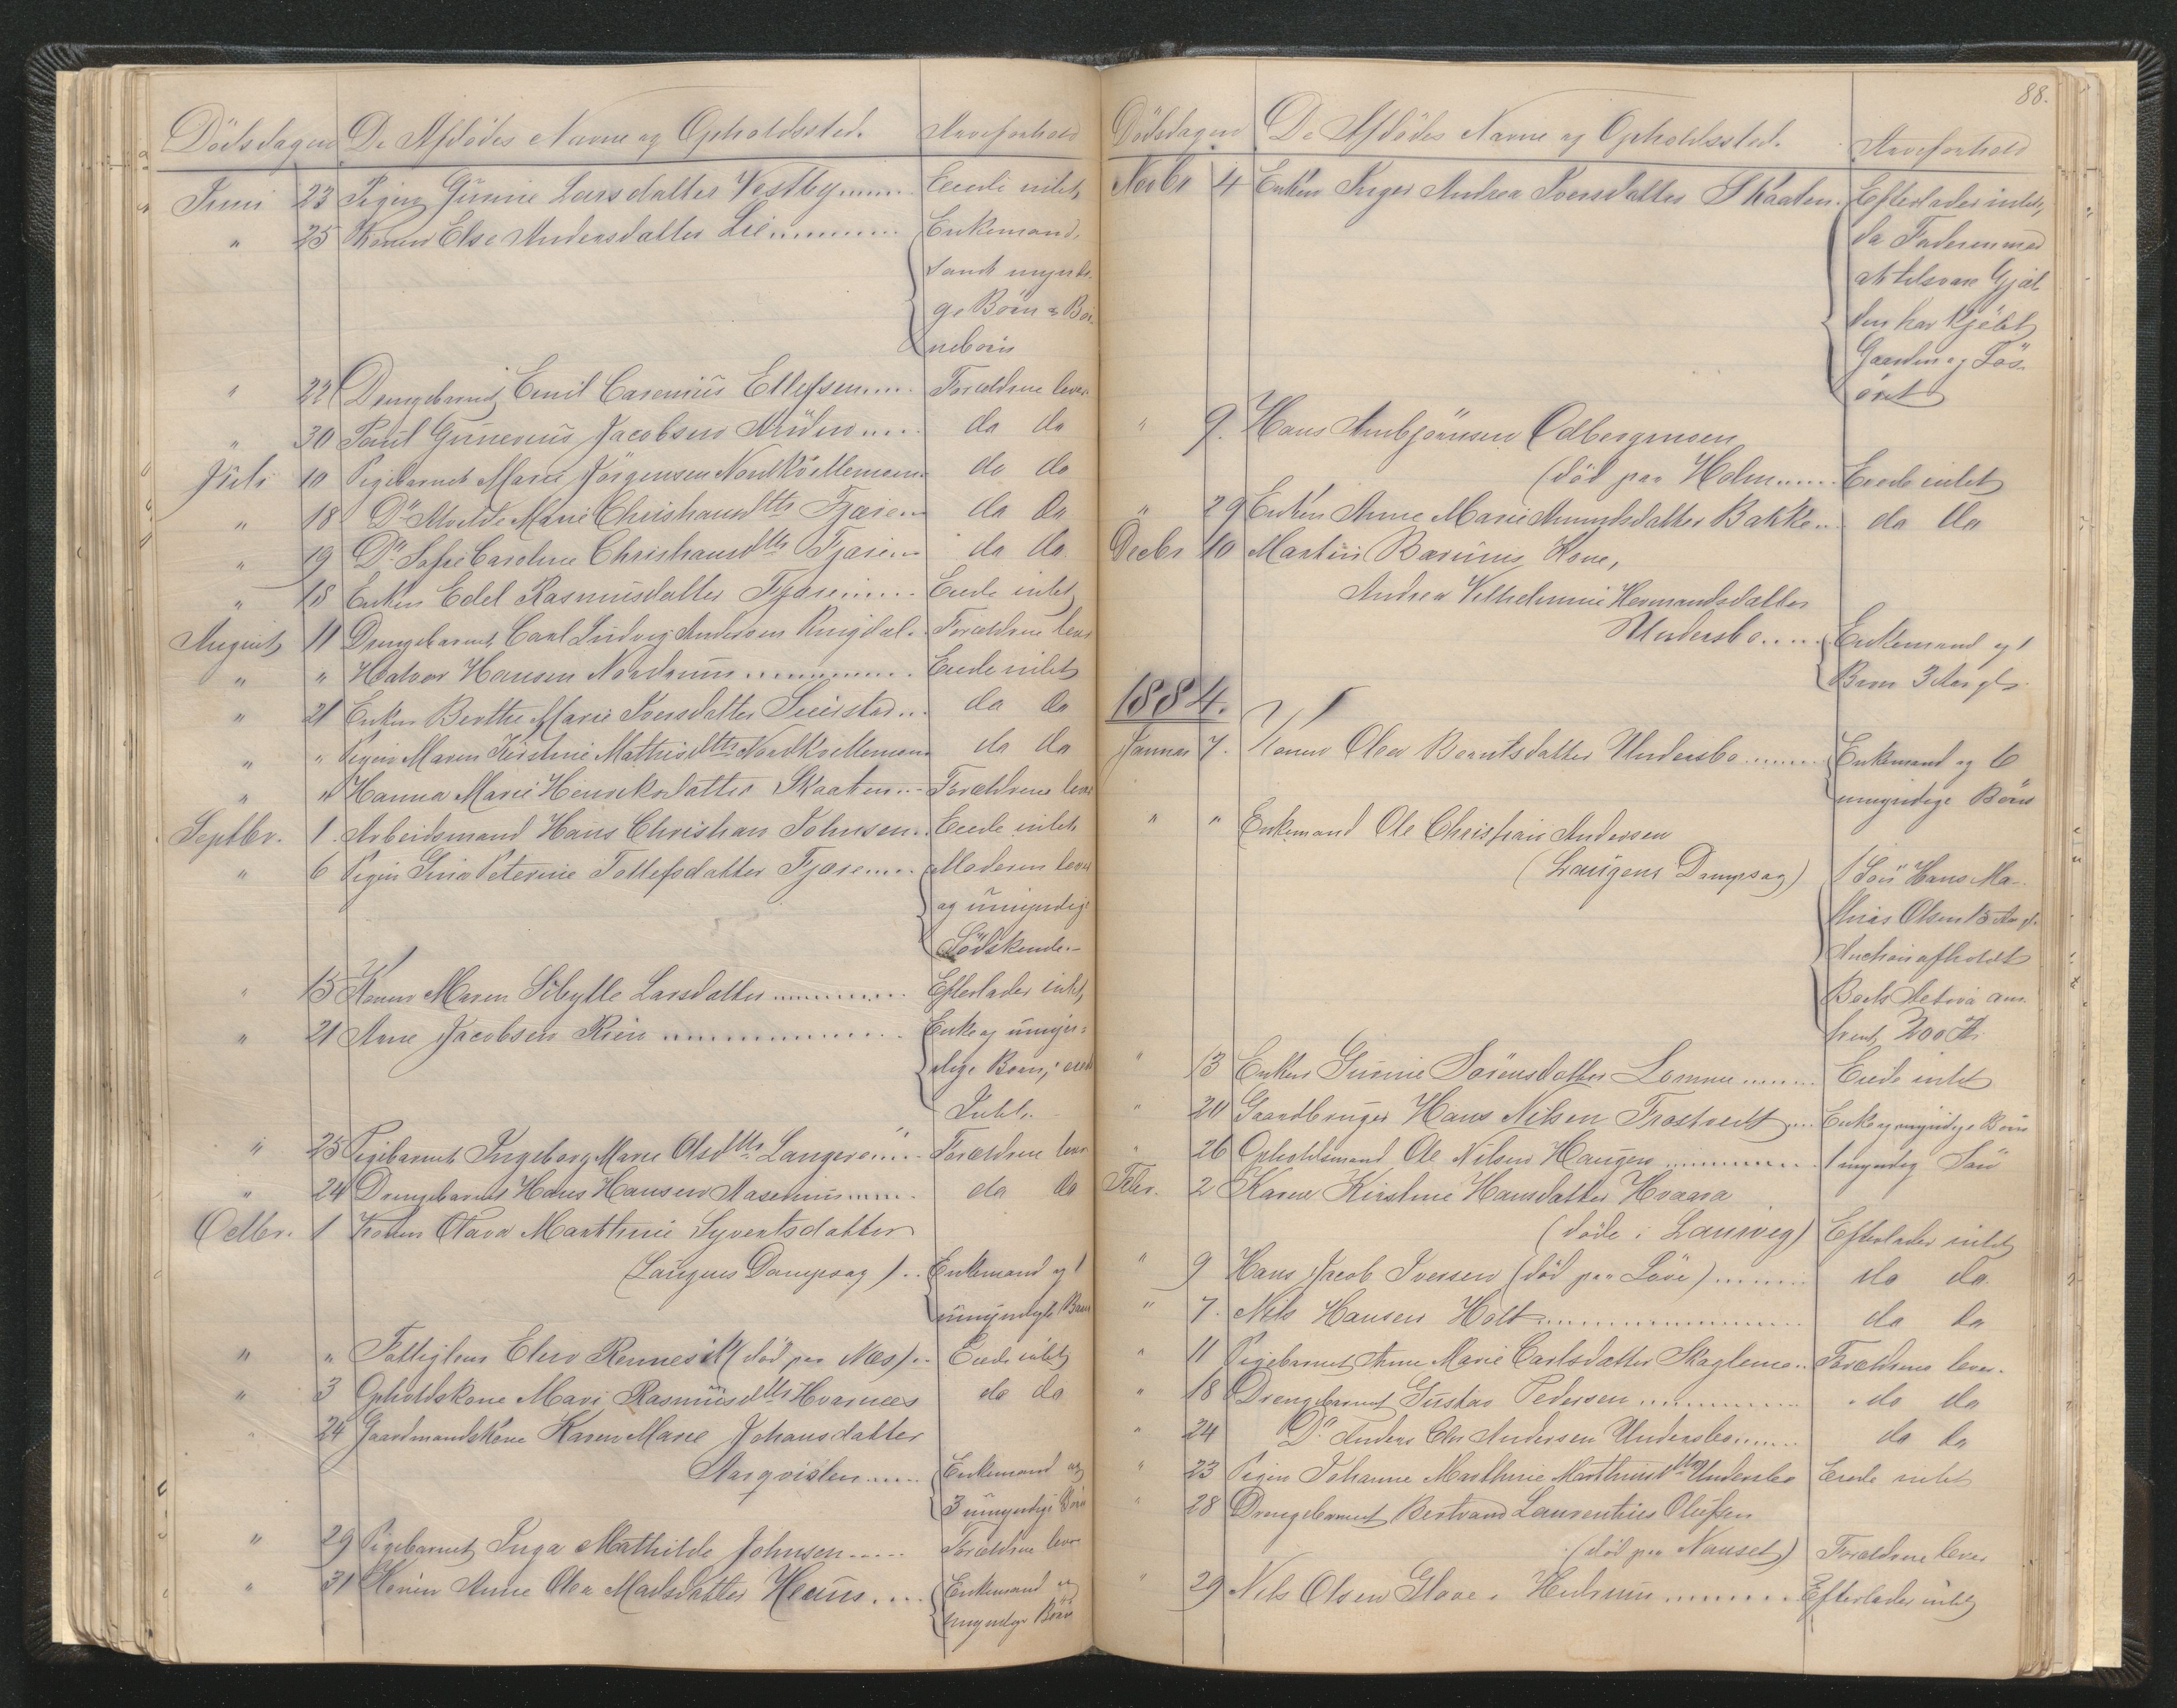 Dödsdagen De Afdödes Navne og Opholdssted. Arveforhold
Juni 23 Pigen Gunnie Larsdatter Vestby Eiede intet
" 25 Konen Else Andersdatter Lie Enkemand,
samt myndi-
ge Börn & Bör-
nebörn
" 22 Drengebarnet Emil Carenius Ellefsen Forældrene lever
" 30 Paul Gunerius Jacobsen do do
Juli 10 Pigebarnet Marie Jörgensen Nordkvellemoen do do
" 18 Do Alvilde Marie Christiansdtr Fjære do do
" 19 Do Sofie Caroline Christiansdtr Fjære do do
" 18 Enken Edel Rasmusdatter Fjære Eiede intet
August 11 Drengebarnet Carl Ludvig Andersen Ringdal Forældrene lever
" " Halvor Hansen Nordrum Eiede intet
" 21 Enken Berthe Marie Iversdatter Seierstad do do
" " Pigen Maren Kirstine Mathisdtr Nordkvellemoen do do
" " Hanna Marie Henriksdatter Skaaten Forældrene lever
Septbr. 1. Arbeidsmand Hans Christian Johnsen Eiede intet
" 6 Pigen Gina Peterine Tollefsdatter Fjære Moderen lever
og umyndige
Södskende
" 15 Konen Maren Sibylle Larsdatter Efterlader intet
" 21 Arne Jacobsen Rien Enke og umyn-
dige Börn, eied
Intet.
" 25 Pigebarnet Ingeborg Marie Olsdtr Langerö Forældrene lever
" 24 Drengebarnet Hans Hansen Aaserum do do
Octbr. 1 Konen Olava Marthine Syvertsdatter
(Laugens Dampsag) Enkemand og 1
umyndigt Barn
" " Fattiglem Elen Rennesik (död paa Næs) Eiede intet
" 3 Opholdskone Mari Rasmusdtr Hvarnes do do
" 24 Gaardmandskone Karen Marie Johansdatter
Aarqvislen Enkemand og
3 umyndige Börn
" 29 Pigebarnet Inga Mathilde Johnsen Forældrene lever
" 31 Konen Anne Olea Madsdatter Heum Enkemand og
umyndige Börn
88.
Dödsdagen De Afdödes Navne og Opholdssted. Arveforhold
Novbr 4 Enken Inger Andrea Iversdatter Skaaten Efterlader intet,
da Faderen med
at tilsvare Gjæl-
den har kjöbt
Gaarden og Lös-
öret
" 9. Hans Arnbjörnsen Odbergmoen
(död paa Holm Eiede intet
" 29 Enken Anne Marie Amundsdatter Bakke do do
Decbr 10 Martin Bærums Kone,
Andrea Vilhelmine Hermandsdatter
Undersbo Enkemand og 1
Barn 3 Aar gl.
1884.
Januar 7. Konen Olea Berntsdatter Undersbo Enkemand og 6
umyndige Börn
" " Enkemand Ole Christian Andersen
(Laugens Dampsag) 1 Sön Hans Ma-
thias Olsen 15 Aar gl.
Auction afholdt
Boets Activa om-
trent 200 Kr.
" 13 Enken Gunnie Sörensdatter Lomme Eiede intet
" 20 Gaardbruger Hans Nilsen Trostvedt Enke og myndige Börn
" 26 Opholdsmand Ole Nilsen Haugen 1 myndig Sön
Febr. 2 Karen Kirstine Hansdatter Hvaara
(döde i Laurvig) Efterlader intet
" 9 Hans Jacob Iversen (död paa Löve) do do
" 7. Nils Hansen Holt do do
" 11 Pigebarnet Anne Marie Carlsdatter Skaglemo Forældrene lever
" 18 Drengebarnet Gustav Pedersen do do
" 24 Do Anders Chr Andersen Undersbo do do
" 23 Pigen Johanne Marthine Marthinsdtr Undersbo Eiede intet
" 28 Drengebarnet Bertrand Laurentius Olufsen
(död paa Nanset) Forældrene lever
" 29 Nils Olsen Glove i Hedrum Efterlader intet